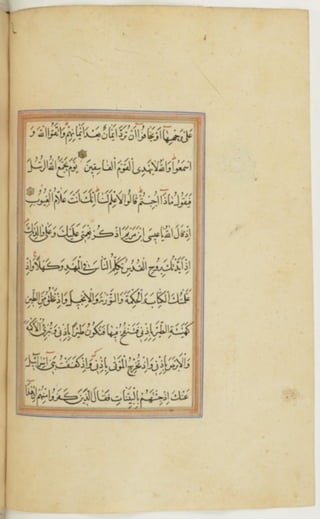 على وجهها او يخافوا ان ترد ايمان بعد ايمانهم واتقوا الله و
اسمعوا والله لا يهدى القوم الفاسقين يوم يجمع الله الرسل
فيقول ماذا اجبتم قالوا لا علم لنا انك انت علام الغيوب
اذ قال الله يا عيسى ابن مريم اذكر نعمتى عليك وعلى والدتك
اذ ايدتك بروح القدس تكلم الناس فى المهد وكهلا واذ
علمتك الكتاب والحكمة والتورية والانجيل واذ تخلق من الطين
كهيئة الطير باذنى فتنفخ فيها فتكون طيرا باذنى وتبرئ الاكمه
والابرص باذنى واذ تخرج الموتى باذنى واذ كففت بنى اسرائيل
عنك اذ جئتهم بالبينات فقال الذين كفروا منهم ان هذا